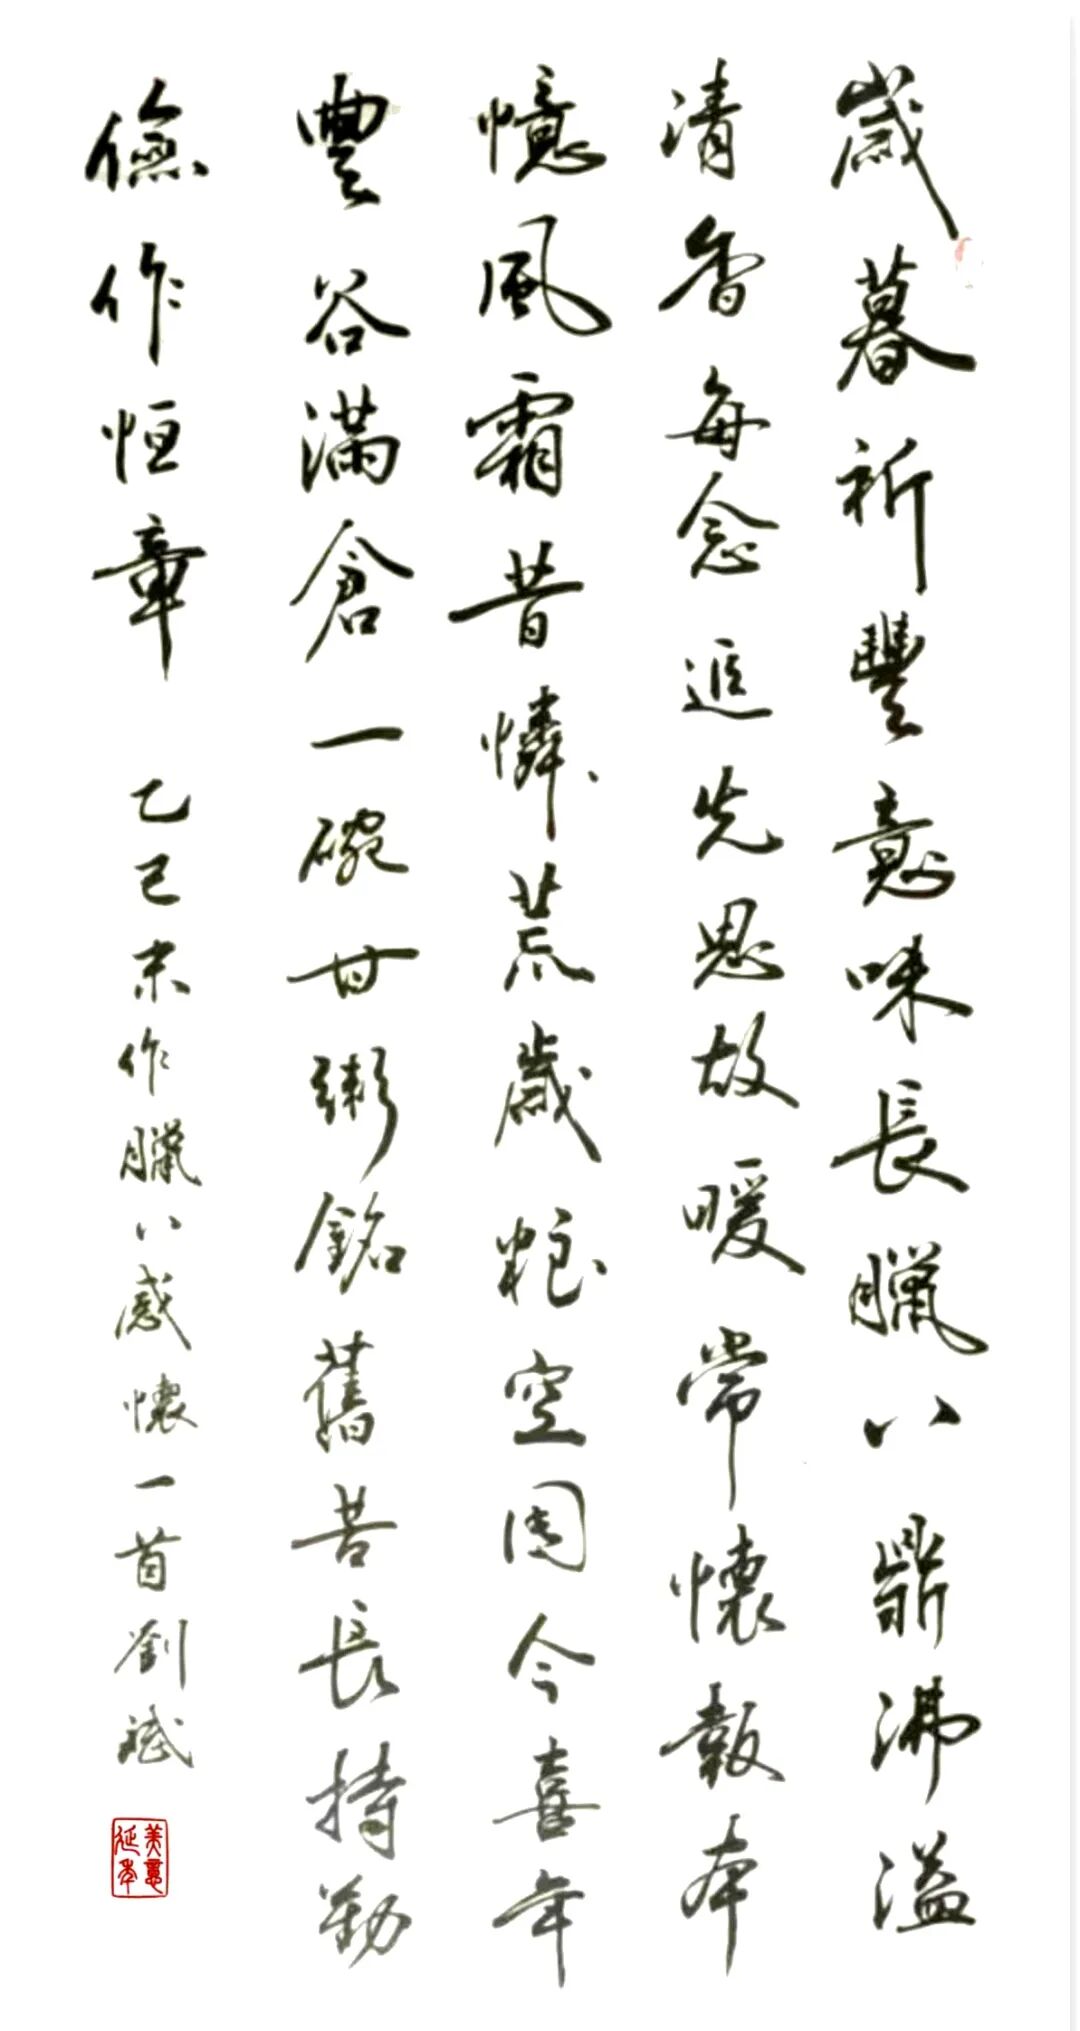 歲暮祈豐意味長臘八鼎沸溢
清香每念追先思故暖常懷報本
憶風霜昔憐荒歲粮空囤今喜年
豐谷滿倉一碗甘粥銘舊苦長持勤
儉作恒章
乙巳末作臘八感懷一首劉斌
美意延年